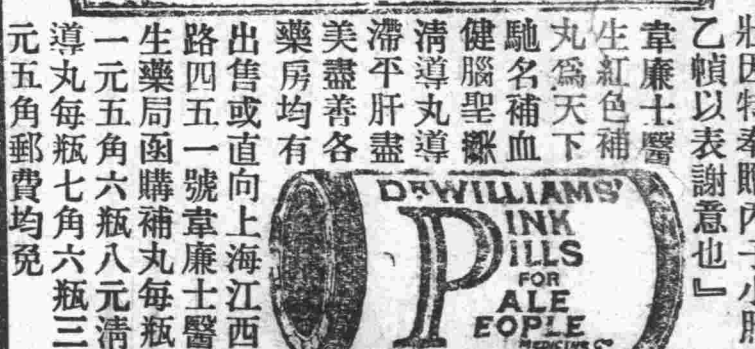 乙幀以表謝意也』
韋廉士醫
生紅色補
丸爲天下
馳名補血
健腦聖
清導丸導
滯平肝盡
美盡善各
藥房均有
出售或直向上海江西
路四五一號韋廉士醫
生藥局函購補丸每瓶
一元五角六瓶八元清
導丸每瓶七角六瓶三
元五角郵費均免
DR. WILLIAMS'
PINK
PILLS
FOR
PALE
PEOPLE
MEDICINE Co